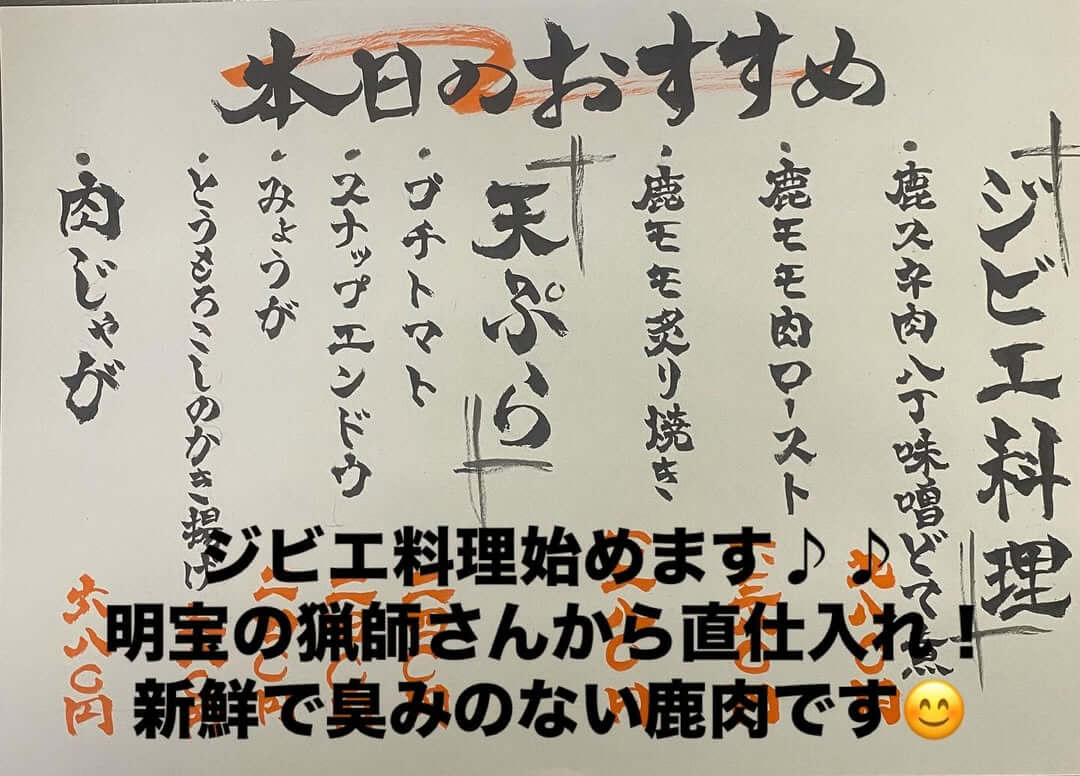 本日のおすすめ
ジビエ料理
・鹿スネ肉八丁味噌どて煮
・鹿モモ肉ロースト
・鹿モモ炙り焼き
天ぷら
・プチトマト
・スナップエンドウ
・みょうが
・とうもろこしのかき揚げ
・肉じゃが
六八〇円
ジビエ料理始めます♪♪
明宝の猟師さんから直仕入れ！
新鮮で臭みのない鹿肉です😊